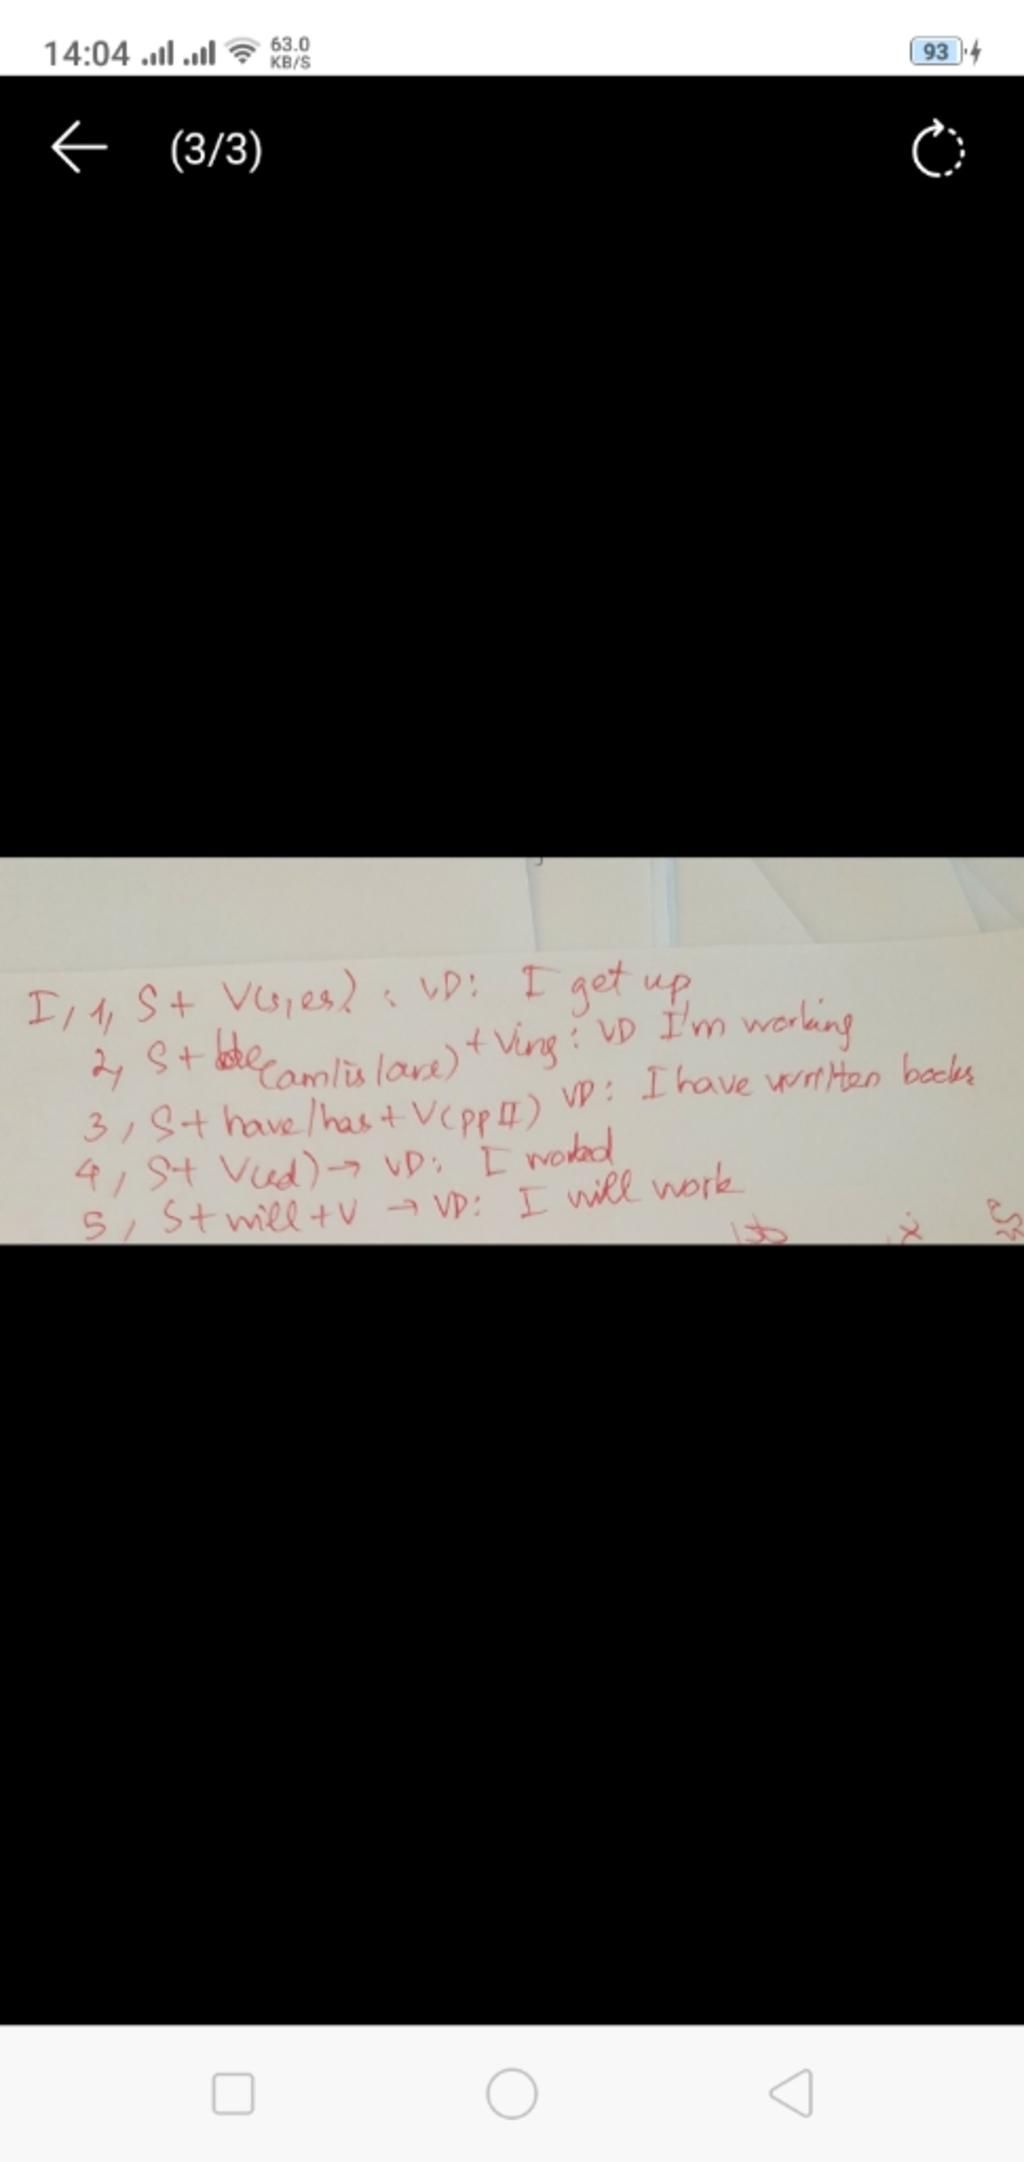 14:04 63.0 KB/S 93
(3/3)
I, 1, S + V(s,es) : VD: I get up
2, S + be (am/is/are) + Ving : VD I'm working
3, S + have/has + V(pp II) VD: I have written books
4, S + V(ed) → VD: I worked
5, S + will + V → VD: I will work